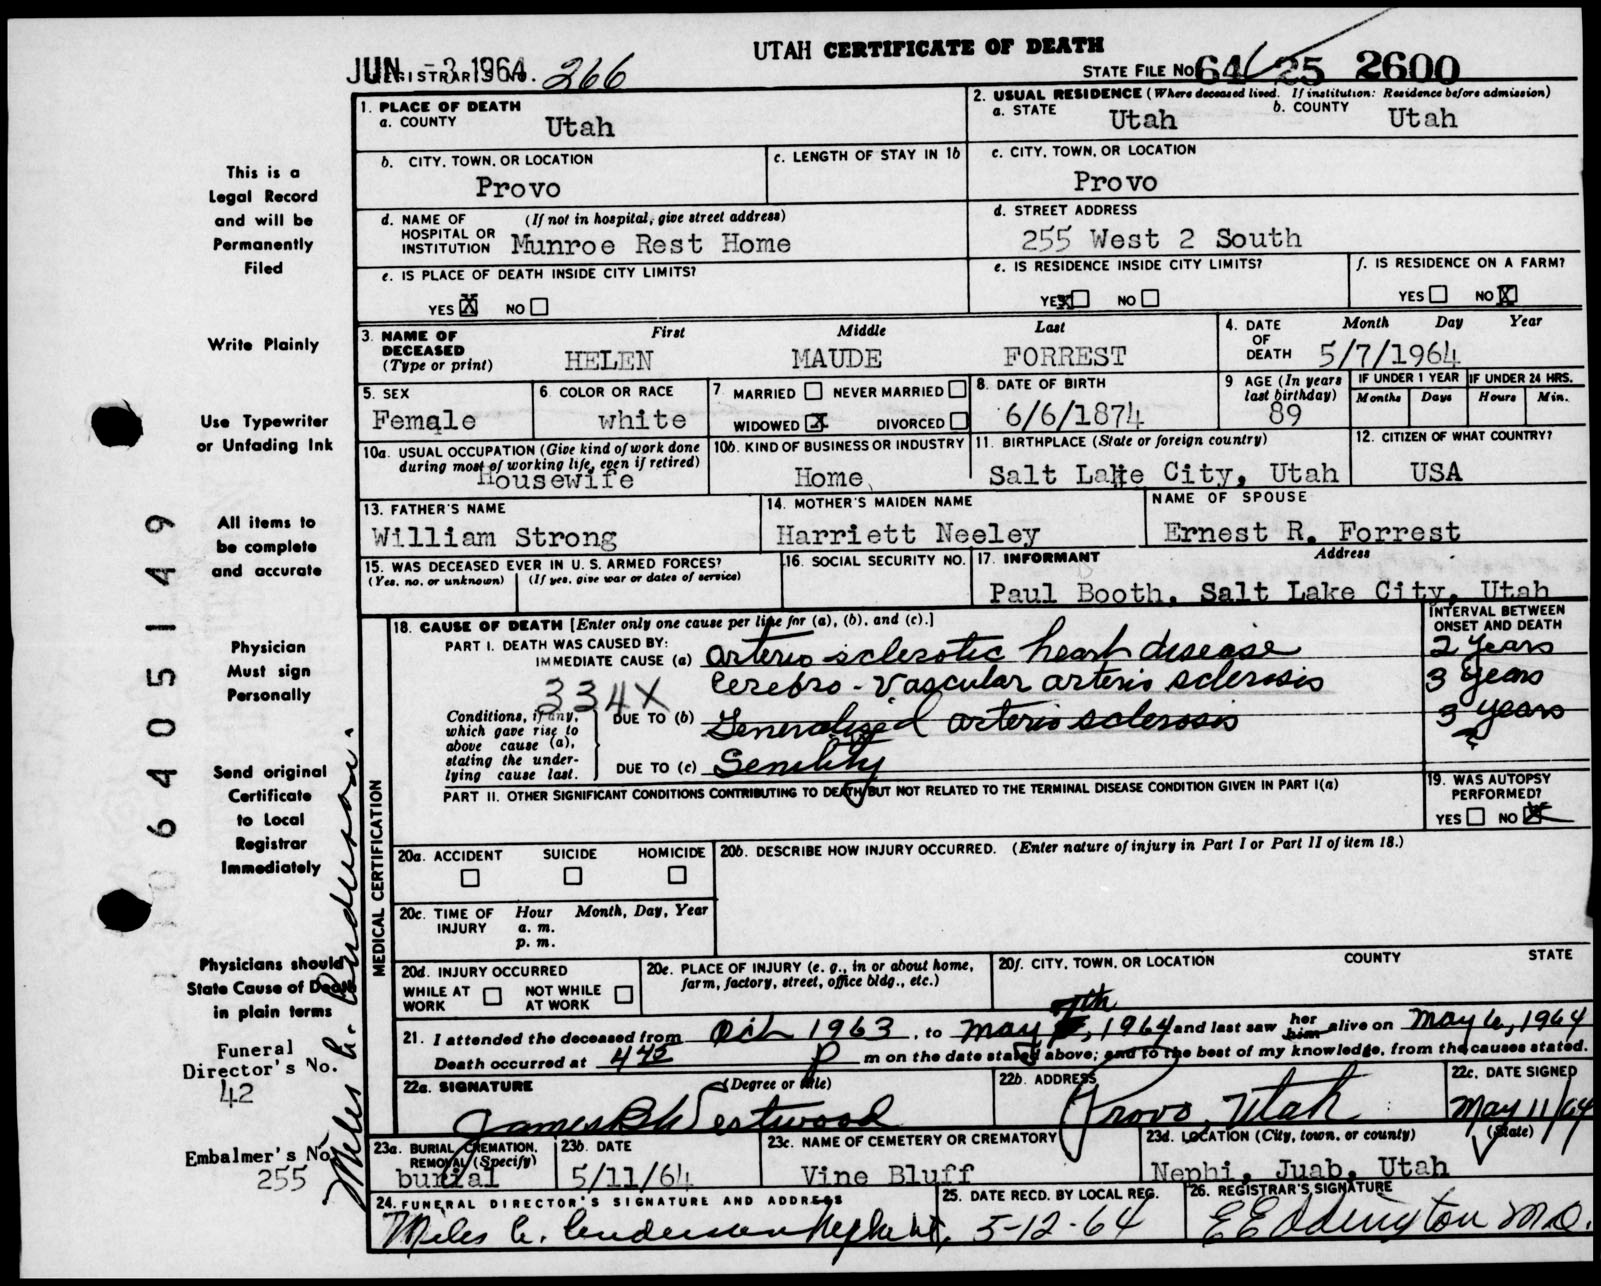 UTAH CERTIFICATE OF DEATH
JUN -3 1964 REGISTRAR'S NO. 266
STATE FILE NO. 64 25 2600
1. PLACE OF DEATH
a. COUNTY Utah
2. USUAL RESIDENCE (Where deceased lived. If institution: Residence before admission)
a. STATE Utah b. COUNTY Utah
b. CITY, TOWN, OR LOCATION Provo
c. LENGTH OF STAY IN 1b
c. CITY, TOWN, OR LOCATION Provo
d. NAME OF HOSPITAL OR INSTITUTION (If not in hospital, give street address) Munroe Rest Home
d. STREET ADDRESS 255 West 2 South
e. IS PLACE OF DEATH INSIDE CITY LIMITS?
YES X NO
e. IS RESIDENCE INSIDE CITY LIMITS?
YES X NO
f. IS RESIDENCE ON A FARM?
YES NO X
3. NAME OF DECEASED (Type or print)
First Middle Last
HELEN MAUDE FORREST
4. DATE OF DEATH Month Day Year
5/7/1964
5. SEX Female
6. COLOR OR RACE white
7. MARRIED NEVER MARRIED
WIDOWED X DIVORCED
8. DATE OF BIRTH 6/6/1874
9. AGE (In years last birthday) 89
IF UNDER 1 YEAR Months Days
IF UNDER 24 HRS. Hours Min.
10a. USUAL OCCUPATION (Give kind of work done during most of working life, even if retired) Housewife
10b. KIND OF BUSINESS OR INDUSTRY Home
11. BIRTHPLACE (State or foreign country) Salt Lake City, Utah
12. CITIZEN OF WHAT COUNTRY? USA
13. FATHER'S NAME William Strong
14. MOTHER'S MAIDEN NAME Harriett Neeley
NAME OF SPOUSE Ernest R. Forrest
15. WAS DECEASED EVER IN U. S. ARMED FORCES?
(Yes, no, or unknown) (If yes, give war or dates of service)
16. SOCIAL SECURITY NO.
17. INFORMANT Address
Paul Booth, Salt Lake City, Utah
MEDICAL CERTIFICATION
18. CAUSE OF DEATH [Enter only one cause per line for (a), (b), and (c).]
INTERVAL BETWEEN ONSET AND DEATH
PART I. DEATH WAS CAUSED BY:
IMMEDIATE CAUSE (a) arterio sclerotic heart disease 2 years
334X
Cerebro-Vascular arterio sclerosis 3 years
Conditions, if any, which gave rise to above cause (a), stating the underlying cause last.
DUE TO (b) Generalized arterio sclerosis 3 years
DUE TO (c) Senility
PART II. OTHER SIGNIFICANT CONDITIONS CONTRIBUTING TO DEATH BUT NOT RELATED TO THE TERMINAL DISEASE CONDITION GIVEN IN PART I(a)
19. WAS AUTOPSY PERFORMED?
YES NO X
20a. ACCIDENT SUICIDE HOMICIDE
20b. DESCRIBE HOW INJURY OCCURRED. (Enter nature of injury in Part I or Part II of item 18.)
20c. TIME OF INJURY Hour Month, Day, Year
a. m.
p. m.
20d. INJURY OCCURRED
WHILE AT WORK NOT WHILE AT WORK
20e. PLACE OF INJURY (e. g., in or about home, farm, factory, street, office bldg., etc.)
20f. CITY, TOWN, OR LOCATION COUNTY STATE
21. I attended the deceased from Oct 1963, to May 7th, 1964 and last saw her him alive on May 6, 1964
Death occurred at 4 45 p m on the date stated above; and to the best of my knowledge, from the causes stated.
22a. SIGNATURE (Degree or title)
James B Westwood
22b. ADDRESS Provo, Utah
22c. DATE SIGNED May 11/64
23a. BURIAL, CREMATION, REMOVAL (Specify) burial
23b. DATE 5/11/64
23c. NAME OF CEMETERY OR CREMATORY Vine Bluff
23d. LOCATION (City, town, or county) (State)
Nephi, Juab, Utah
24. FUNERAL DIRECTOR'S SIGNATURE AND ADDRESS
Miles A. Anderson Nephi Ut.
25. DATE RECD. BY LOCAL REG. 5-12-64
26. REGISTRAR'S SIGNATURE
E E Eddington M.D.
This is a
Legal Record
and will be
Permanently
Filed
Write Plainly
Use Typewriter
or Unfading Ink
All items to
be complete
and accurate
Physician
Must sign
Personally
Send original
Certificate
to Local
Registrar
Immediately
Physicians should
State Cause of Death
in plain terms
Funeral
Director's No.
42
Embalmer's No.
255
64051 49
Miles A. Anderson.